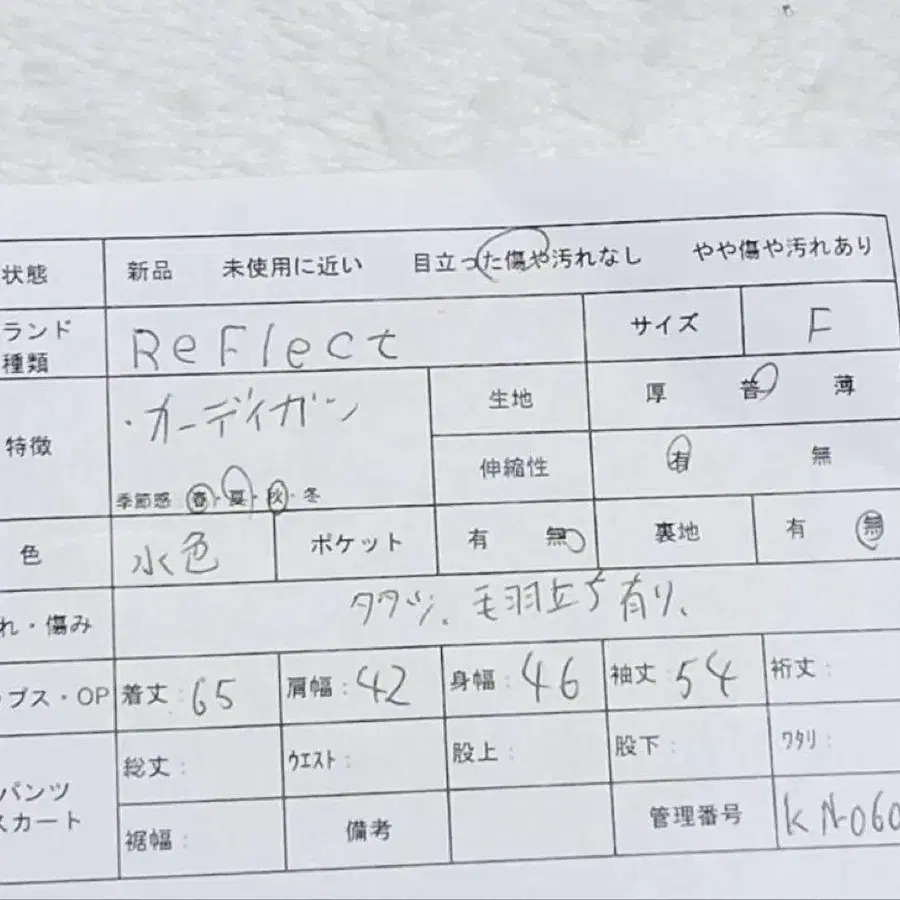 状態 新品 未使用に近い 目立った傷や汚れなし やや傷や汚れあり
ランド
種類 ReFlect サイズ F
特徴 ・カーディガン 生地 厚 普 薄
季節感 春・夏・秋・冬 伸縮性 有 無
色 水色 ポケット 有 無 裏地 有 無
れ・傷み 毛羽立ち有り、
ップス・OP 着丈: 65 肩幅: 42 身幅: 46 袖丈: 54 裄丈:
パンツ
スカート 総丈: ウエスト: 股上: 股下: ワタリ:
裾幅: 備考 管理番号 KN-060